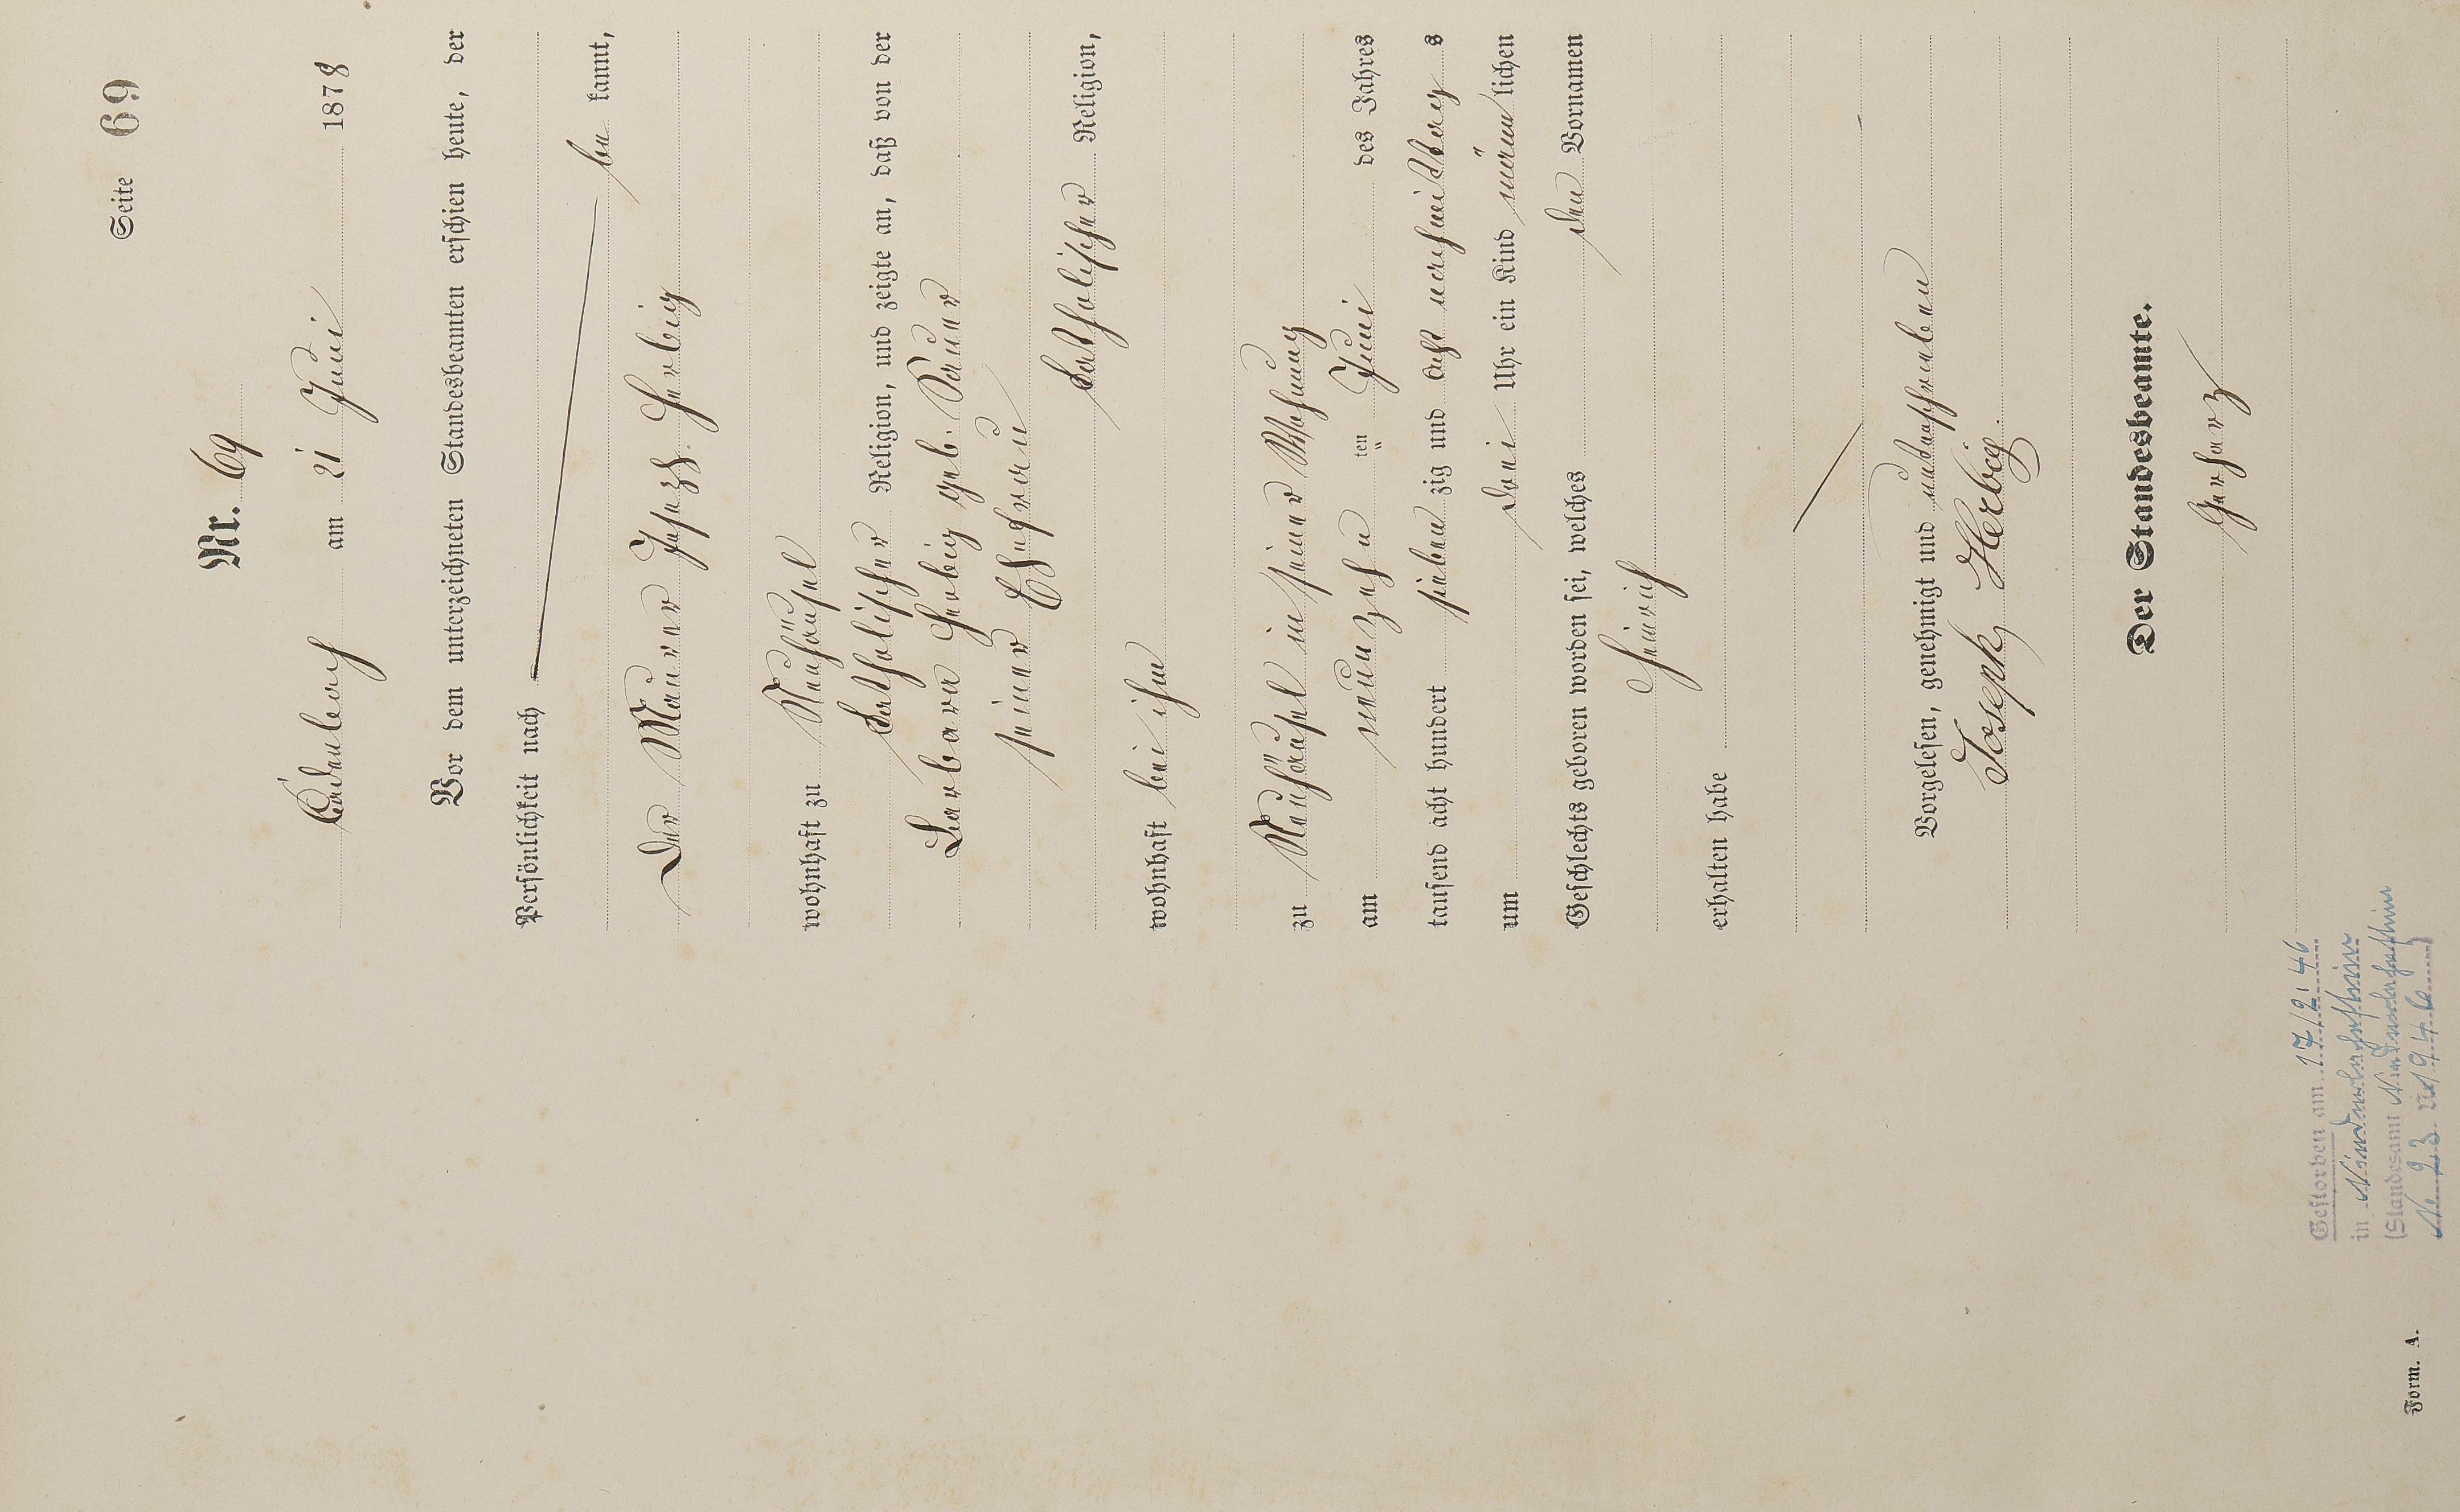 Seite 69
Nr. 69
Cadenbach am 21 Juni 1878
Vor dem unterzeichneten Standesbeamten erschien heute, der
Persönlichkeit nach
be kannt,
Der Maurer Joseph Herbig
wohnhaft zu Neuhäusel
katholischer Religion, und zeigte an, daß von der
Barbara Herbig geb. Bauer
seiner Ehefrau
katholischer Religion,
wohnhaft bei ihm
zu Neuhäusel in seiner Wohnung
am neunzehn ten Juni des Jahres
tausend acht hundert sieben zig und acht nachmittags
um drei Uhr ein Kind männlichen
Geschlechts geboren worden sei, welches den Vornamen
Heinrich
erhalten habe
Vorgelesen, genehmigt und unterschrieben
Joseph Herbig.
Der Standesbeamte.
Gerharz
Gestorben am 17/2.46
in Niederlahnstein
(Standesamt Niederlahnstein
No 23 1946)
Form. A.